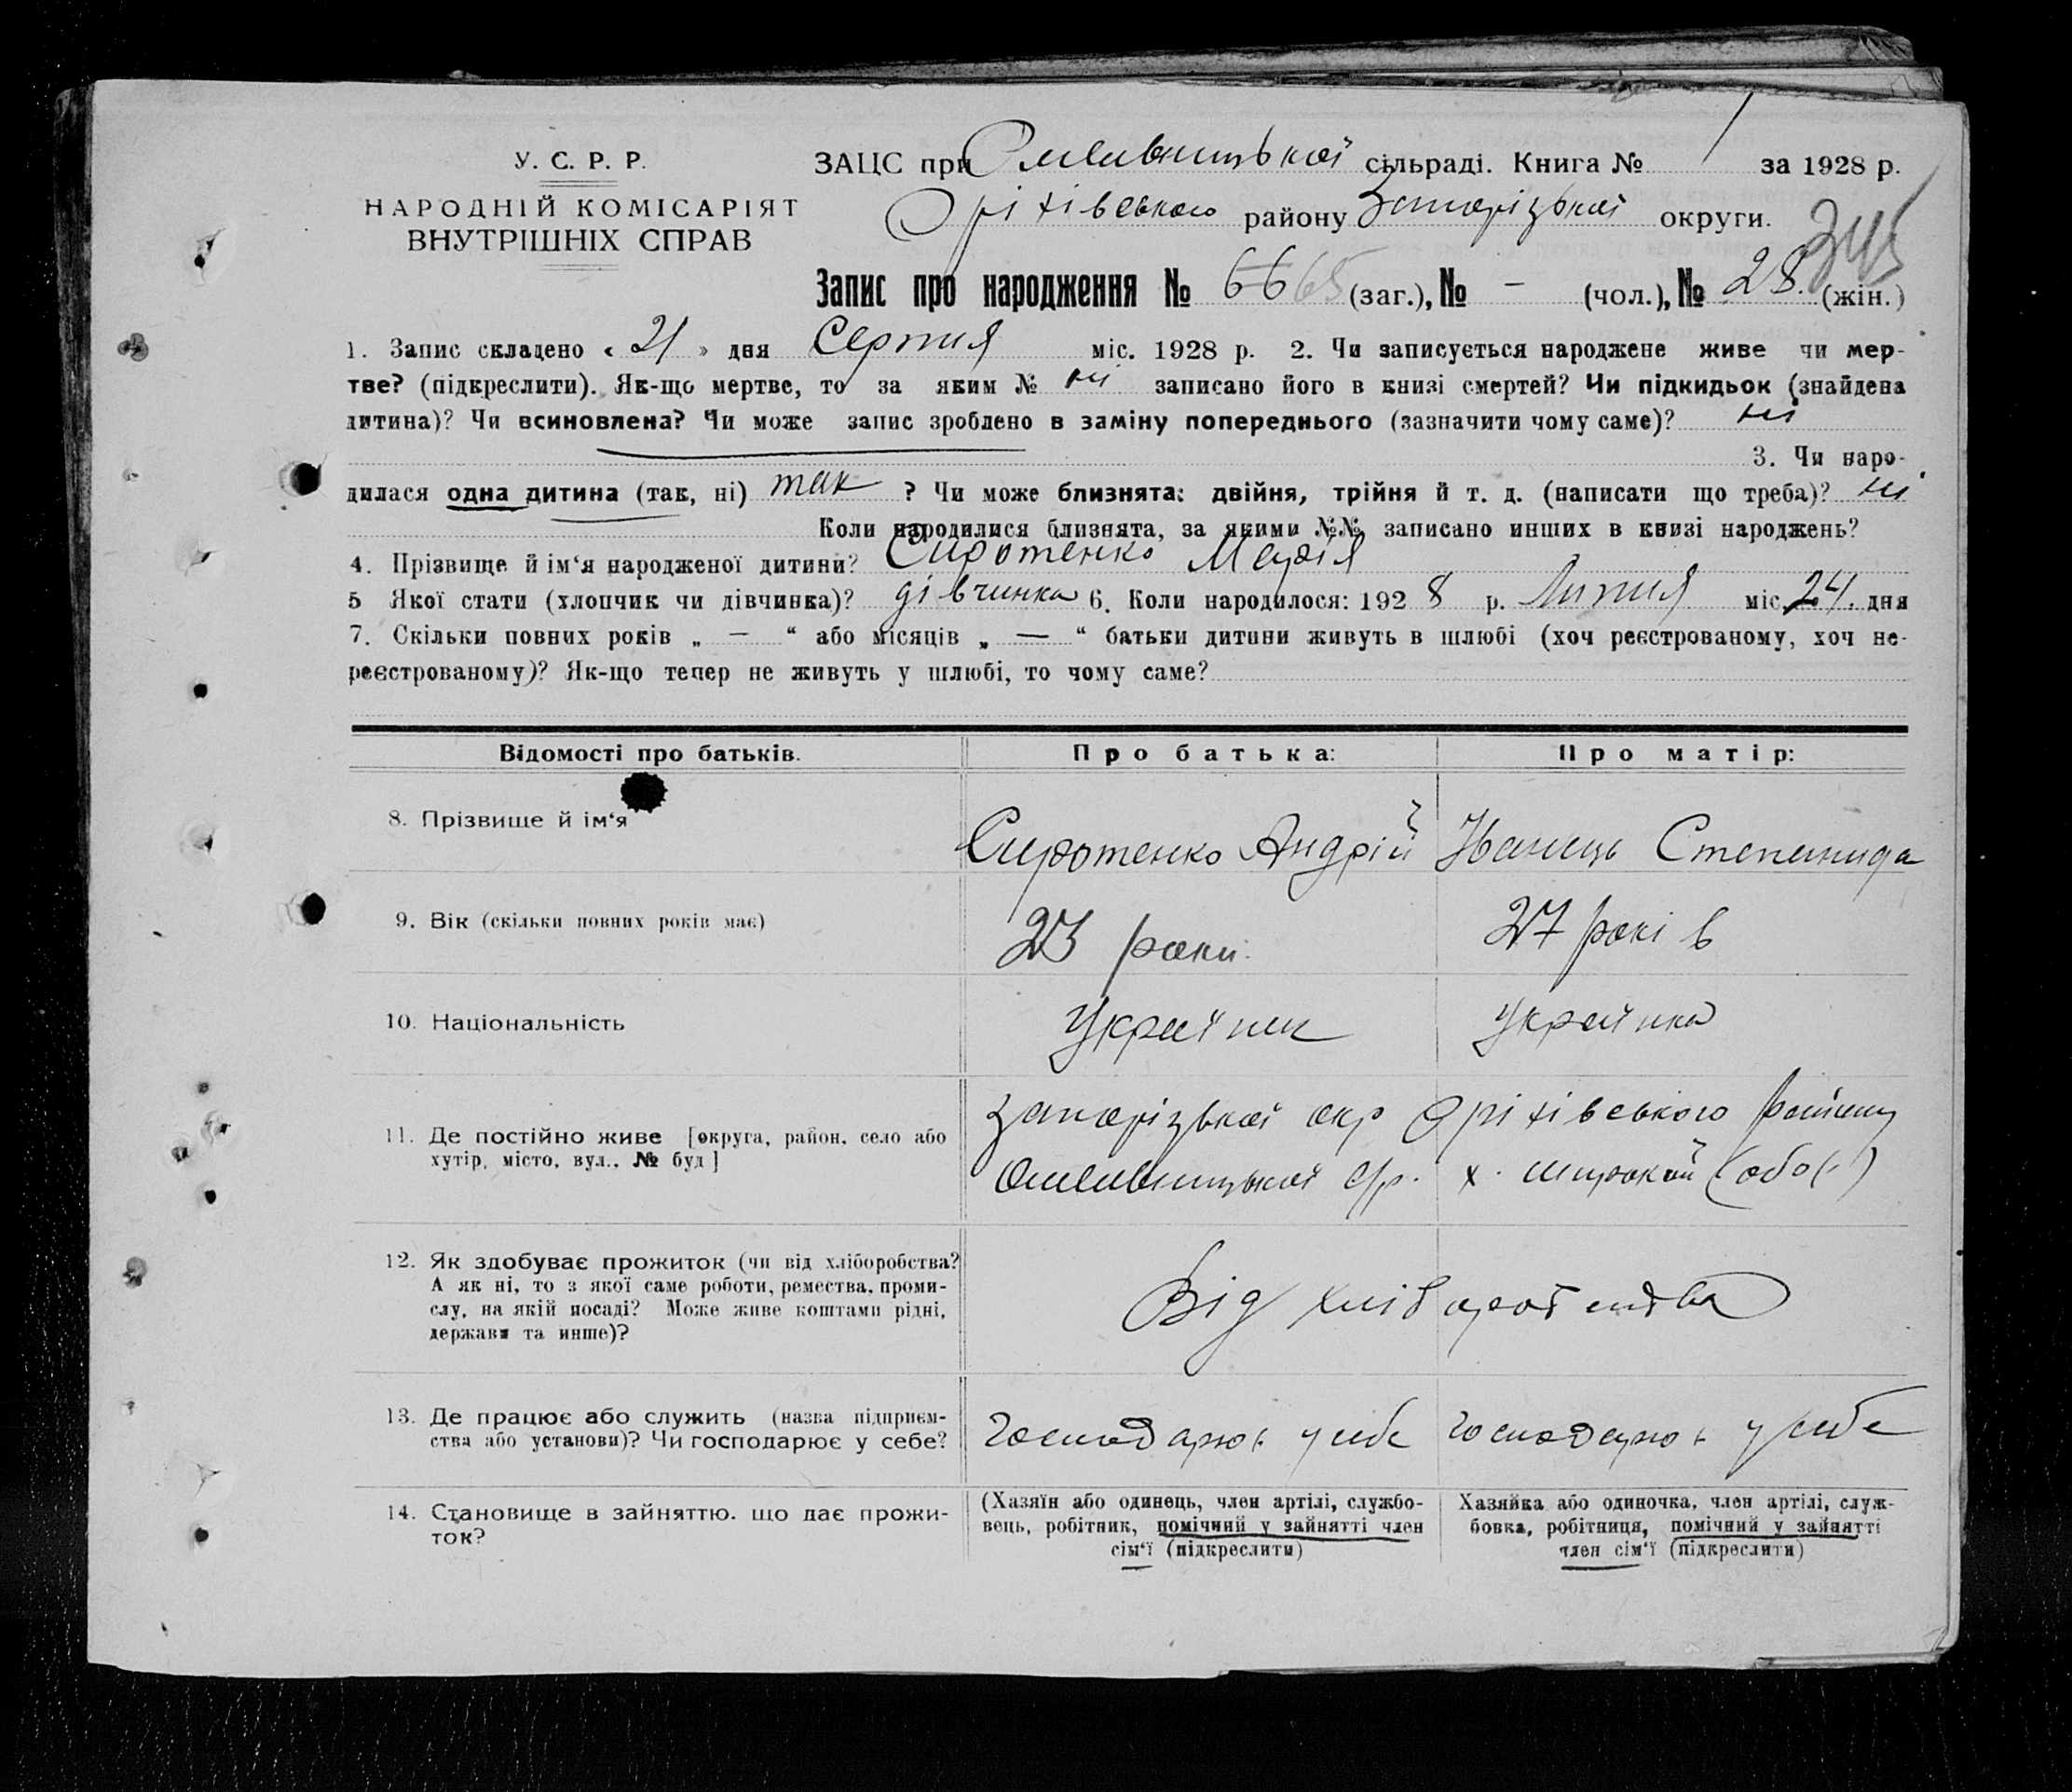 У. С. Р. Р.
НАРОДНІЙ КОМІСАРІЯТ
ВНУТРІШНІХ СПРАВ
ЗАЦС при Омельницької сільраді. Книга № 1 за 1928 р.
Оріхівського району Запорізької округи.
345
Запис про народження № 66 65 (заг.), № - (чол.), № 28. (жін.)
1. Запис складено « 21 » дня Серпня міс. 1928 р. 2. Чи записується народжене живе чи мер-
тве? (підкреслити). Як-що мертве, то за яким № ні записано його в книзі смертей? Чи підкидьок (знайдена
дитина)? Чи всиновлена? Чи може запис зроблено в заміну попереднього (зазначити чому саме)? ні
3. Чи наро-
дилася одна дитина (так, ні) так ? Чи може близнята: двійня, трійня й т. д. (написати що треба)? ні
Коли народилися близнята, за якими №№ записано инших в книзі народжень?
4. Прізвище й ім‘я народженої дитини? Сиротенко Марія
5 Якої стати (хлопчик чи дівчинка)? дівчинка 6. Коли народилося: 192 8 р. Липня міс. 24. дня
7. Скільки повних років „ — “ або місяців „ — “ батьки дитини живуть в шлюбі (хоч реєстрованому, хоч не-
реєстрованому)? Як-що тепер не живуть у шлюбі, то чому саме?
Відомості про батьків. Про батька: Про матір:
8. Прізвище й ім‘я Сиротенко Андрій Іванець Степанида
9. Вік (скільки повних років має) 23 роки. 27 років
10. Національність Українець Українка
11. Де постійно живе [округа, район, село або
хутір, місто, вул., № буд]
Запорізької окр Оріхівського району
Омельницької с/р. х. Широкий
12. Як здобуває прожиток (чи від хліборобства?
А як ні, то з якої саме роботи, ремества, проми-
слу, на якій посаді? Може живе коштами рідні,
держави та инше)?
Від хліборобства
13. Де працює або служить (назва підприєм-
ства або установи)? Чи господарює у себе?
Господарює у себе господарює у себе
14. Становище в зайняттю, що дає прожи-
ток?
(Хазяїн або одинець, член артілі, службо-
вець, робітник, помічний у зайнятті член
сім‘ї (підкреслити)
Хазяйка або одиночка, член артілі, служ-
бовка, робітниця, помічний у зайнятті
член сім‘ї (підкреслити)